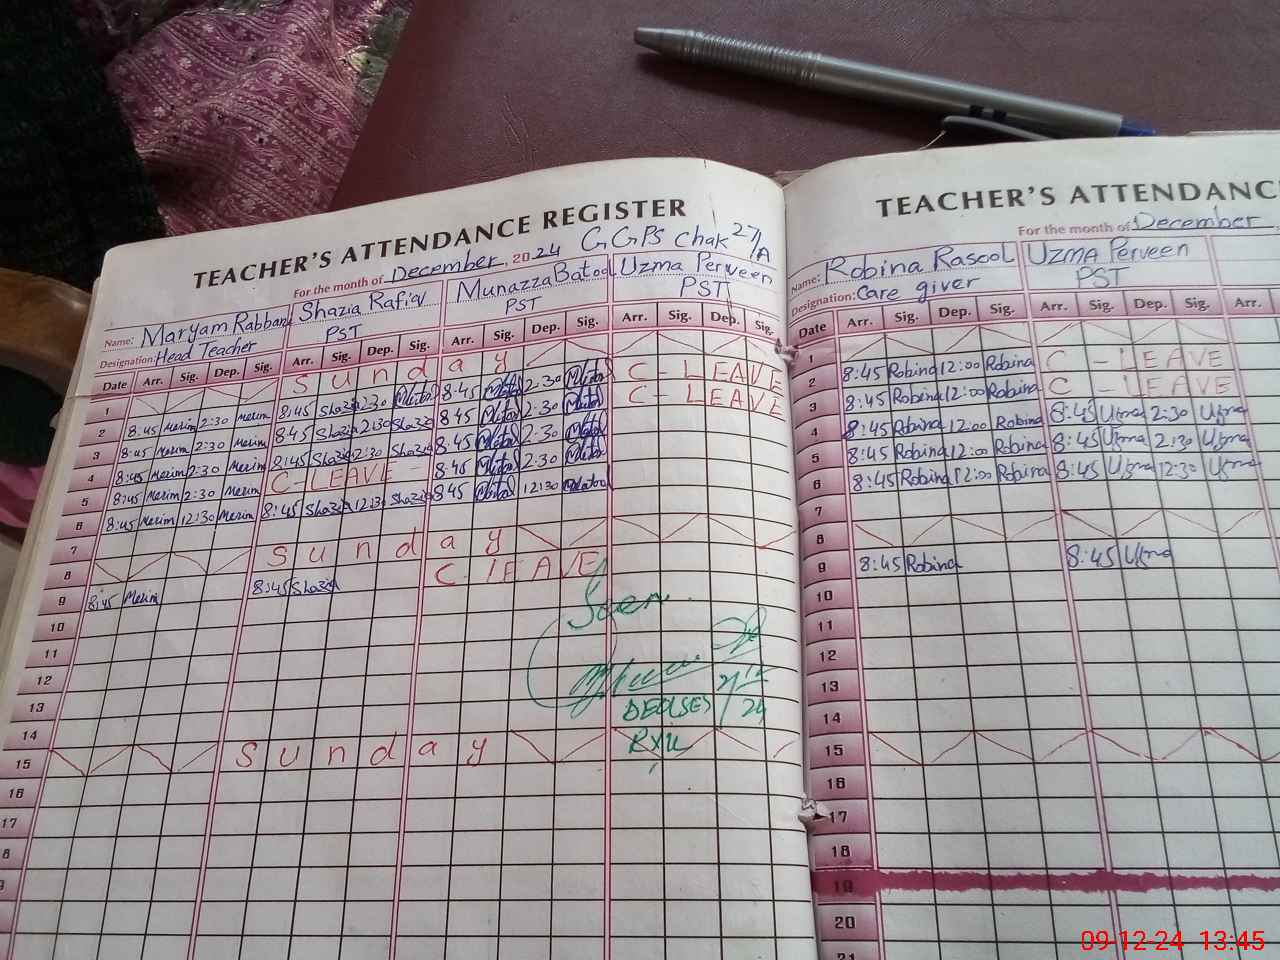 TEACHER'S ATTENDANCE REGISTER
For the month of December, 2024 GGPS Chak 27/A
Name: Maryam Rabbani Shazia Rafiq Munazza Batool Uzma Perveen
Designation: Head Teacher PST PST PST
Date Arr. Sig. Dep. Sig. Arr. Sig. Dep. Sig. Arr. Sig. Dep. Sig. Arr. Sig. Dep. Sig.
1 Sunday
2 8:45 Merim 2:30 Merim 8:45 Shazia 2:30 8:45 2:30 C-LEAVE
3 8:45 Merim 2:30 Merim 8:45 Shazia 2:30 Shazia 8:45 2:30 C-LEAVE
4 8:45 Merim 2:30 Merim 8:45 Shazia 2:30 Shazia 8:45 2:30
5 8:45 Merim 2:30 Merim C-LEAVE- 8:45 2:30
6 8:45 Merim 12:30 Merim 8:45 Shazia 12:30 Shazia 8:45 12:30
7
8 Sunday
9 8:45 Merim 8:45 Shazia C.LEAVE
10
11 Seen
12
13 9/12/24
14
15 Sunday
16
17
TEACHER'S ATTENDANC
For the month of December
Name: Robina Rasool Uzma Perveen
Designation: Care giver PST
Date Arr. Sig. Dep. Sig. Arr. Sig. Dep. Sig. Arr.
1
2 8:45 Robina 12:00 Robina C-LEAVE
3 8:45 Robina 12:00 Robina C-LEAVE
4 8:45 Robina 12:00 Robina 8:45 Uzma 2:30 Uzma
5 8:45 Robina 12:00 Robina 8:45 Uzma 2:30 Uzma
6 8:45 Robina 12:00 Robina 8:45 Uzma 12:30 Uzma
7
8
9 8:45 Robina 8:45 Uzma
10
11
12
13
14
15
16
17
18
19
20
21
09-12-24 13:45